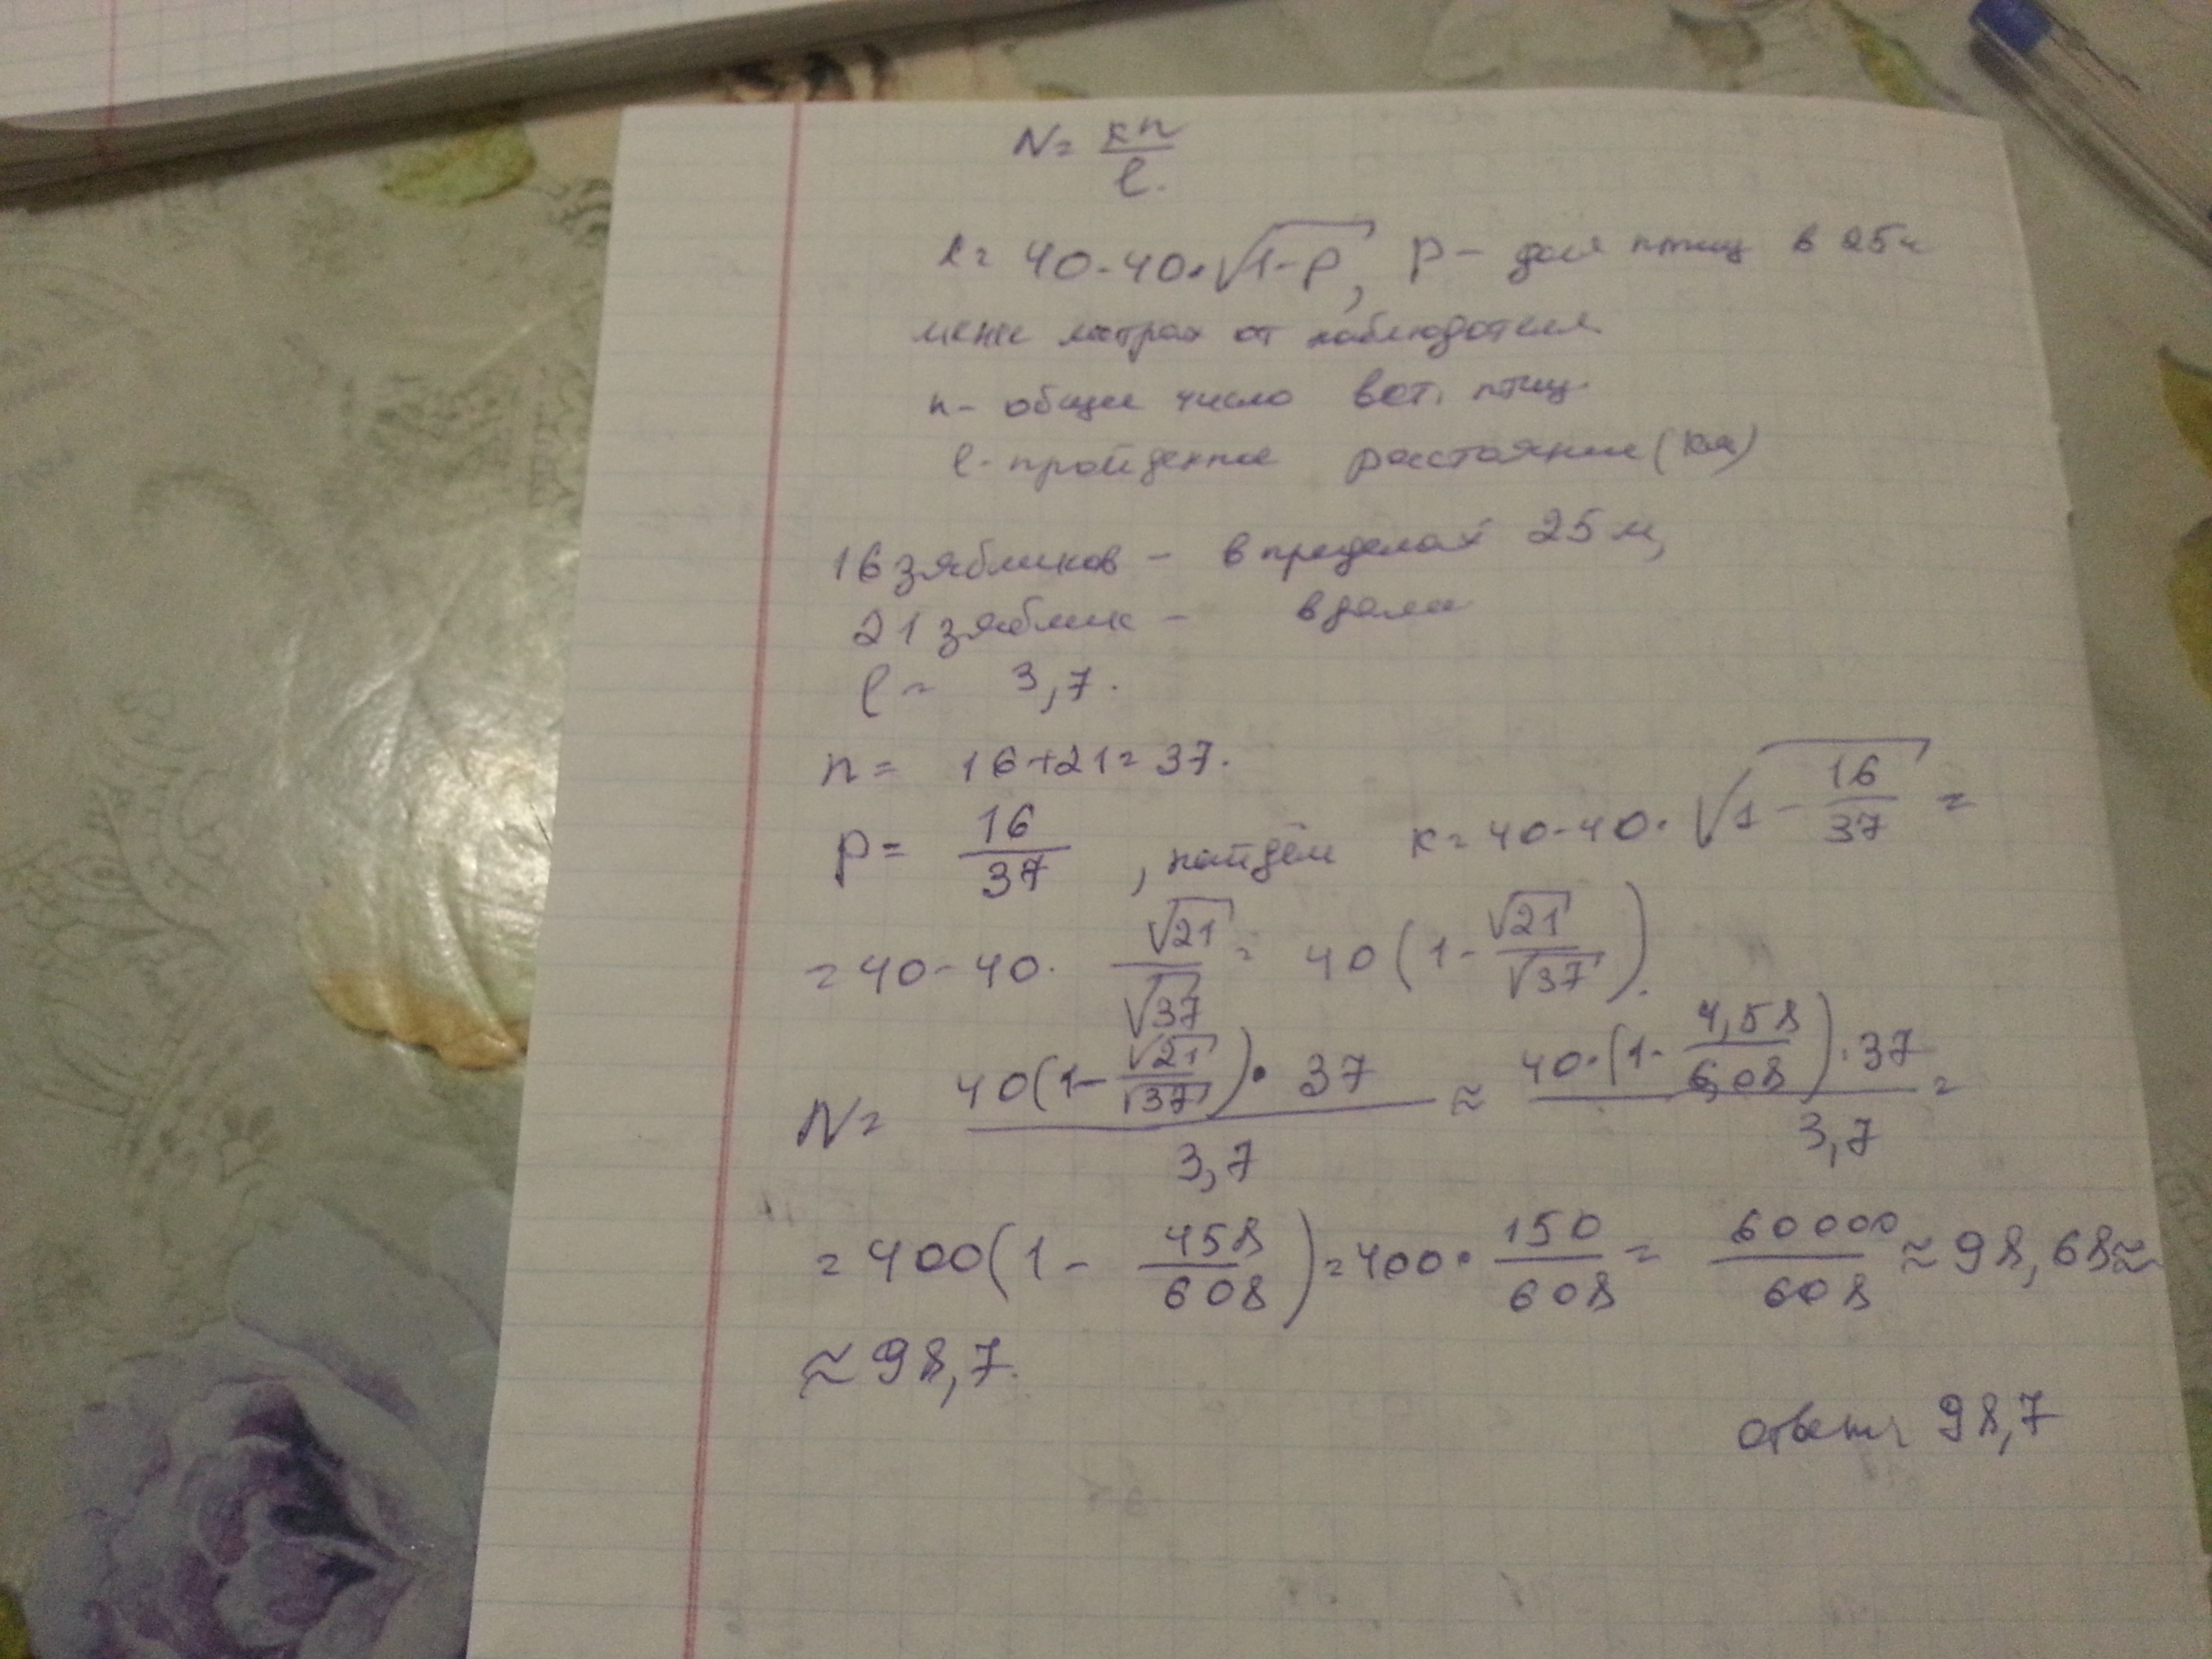 N = кn/l.
к = 40 - 40·√(1-p), p - доля птиц в 25и
менее метрах от наблюдателя
n - общее число вст. птиц
l - пройденное расстояние (км)
16 зябликов - в пределах 25 м,
21 зяблик - вдали
l = 3,7.
n = 16+21=37.
p = 16/37, найдём к = 40-40·√(1 - 16/37) =
= 40 - 40· √21/√37 = 40(1 - √21/√37).
N = 40(1-√21/√37)·37/3,7 ≈ 40·(1-4,58/6,08)·37/3,7 =
= 400(1 - 458/608) = 400· 150/608 = 60000/608 ≈ 98,68 ≈
≈ 98,7.
ответ: 98,7